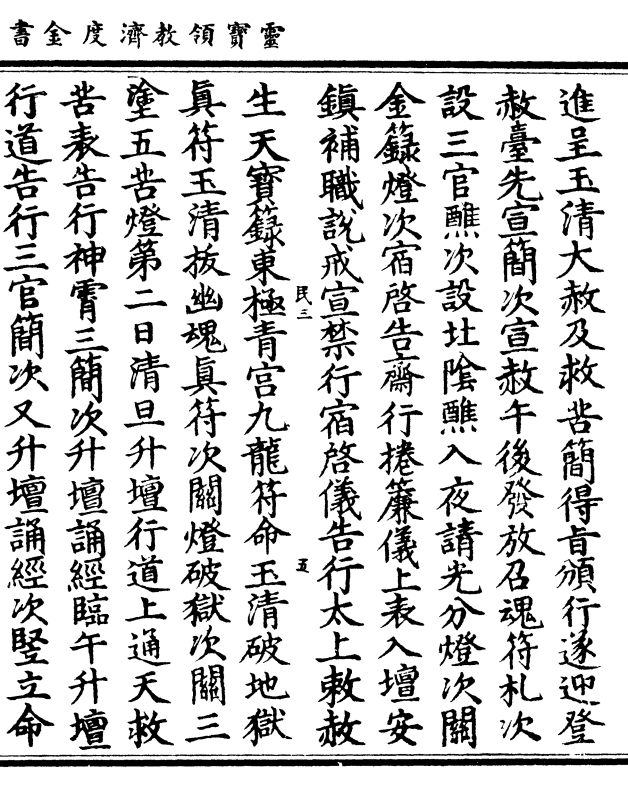 靈寶領教濟度金書
進呈玉清大赦及救苦簡得旨頒行遂迎登
赦臺先宣簡次宣赦午後發放召魂符札次
設三官醮次設社陰醮入夜請光分燈次關
金籙燈次宿啓告齋行捲簾儀上表入壇安
鎮補職說戒宣禁行宿啓儀告行太上敕赦
民三
五
生天寶籙東極青宮九龍符命玉清破地獄
眞符玉清拔幽魂眞符次關燈破獄次關三
塗五苦燈第二日清旦升壇行道上通天救
苦表告行神霄三簡次升壇誦經臨午升壇
行道告行三官簡次又升壇誦經次竪立命